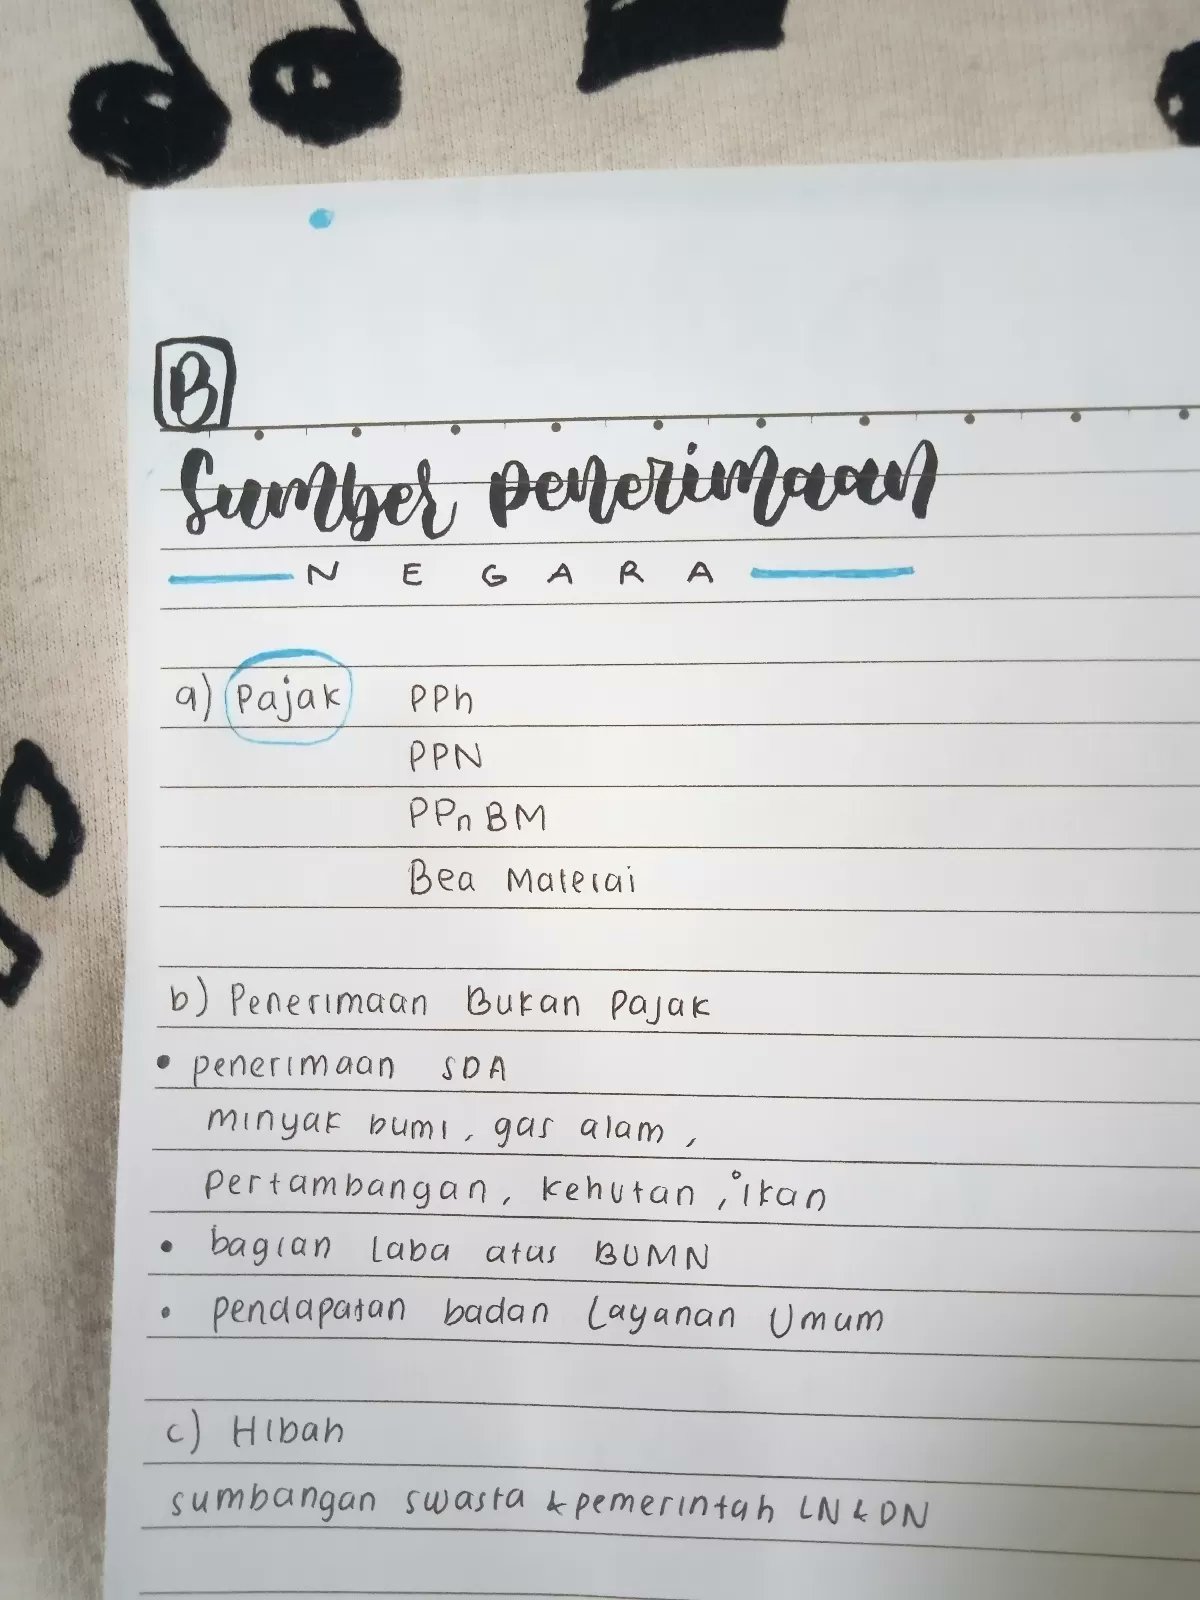 B
Sumber penerimaan
NEGARA
a) Pajak PPh
PPN
PPnBM
Bea Materai
b) Penerimaan Bukan Pajak
• penerimaan SDA
minyak bumi, gas alam,
pertambangan, kehutan, ikan
• bagian Laba atas BUMN
• pendapatan badan Layanan Umum
c) Hibah
sumbangan swasta & pemerintah LN & DN